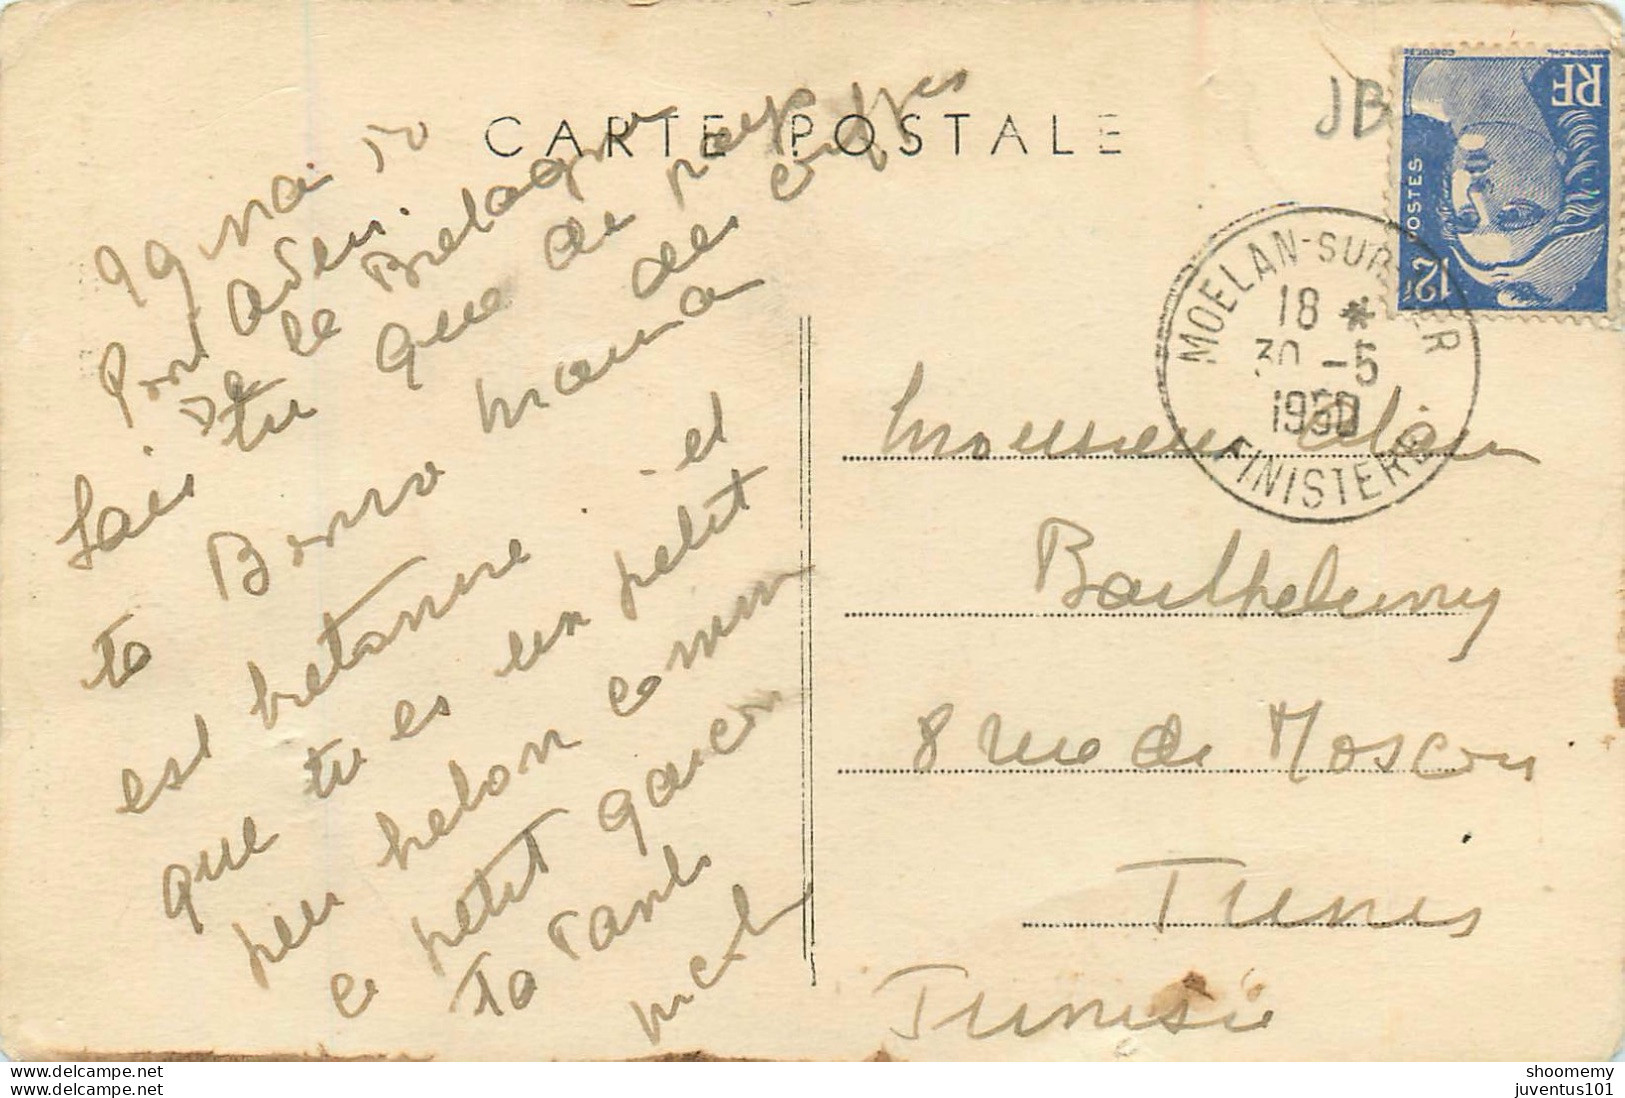 CARTE POSTALE
JB
RF
POSTES
12F
MOELAN-SUR-MER
18 *
30 -5
1950
FINISTERE
29 mai 50
Port Aven
de la Bretagne
Sais tu que de pays
des coiffes
ta Bonne mama
est bretonne et
que tu es un petit
peu breton comme
ce petit garcon
Ta Tante
Monsieur Alain
Barthelemy
8 rue de Moscou
Tunis
Tunisie
www.delcampe.net
www.delcampe.net
shoomemy
juventus101